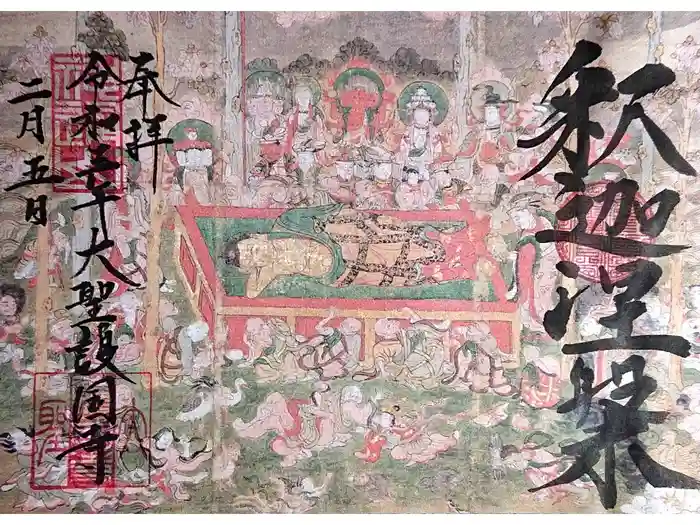 釈迦涅槃
奉拝
令和五年 大聖護国寺
二月五日